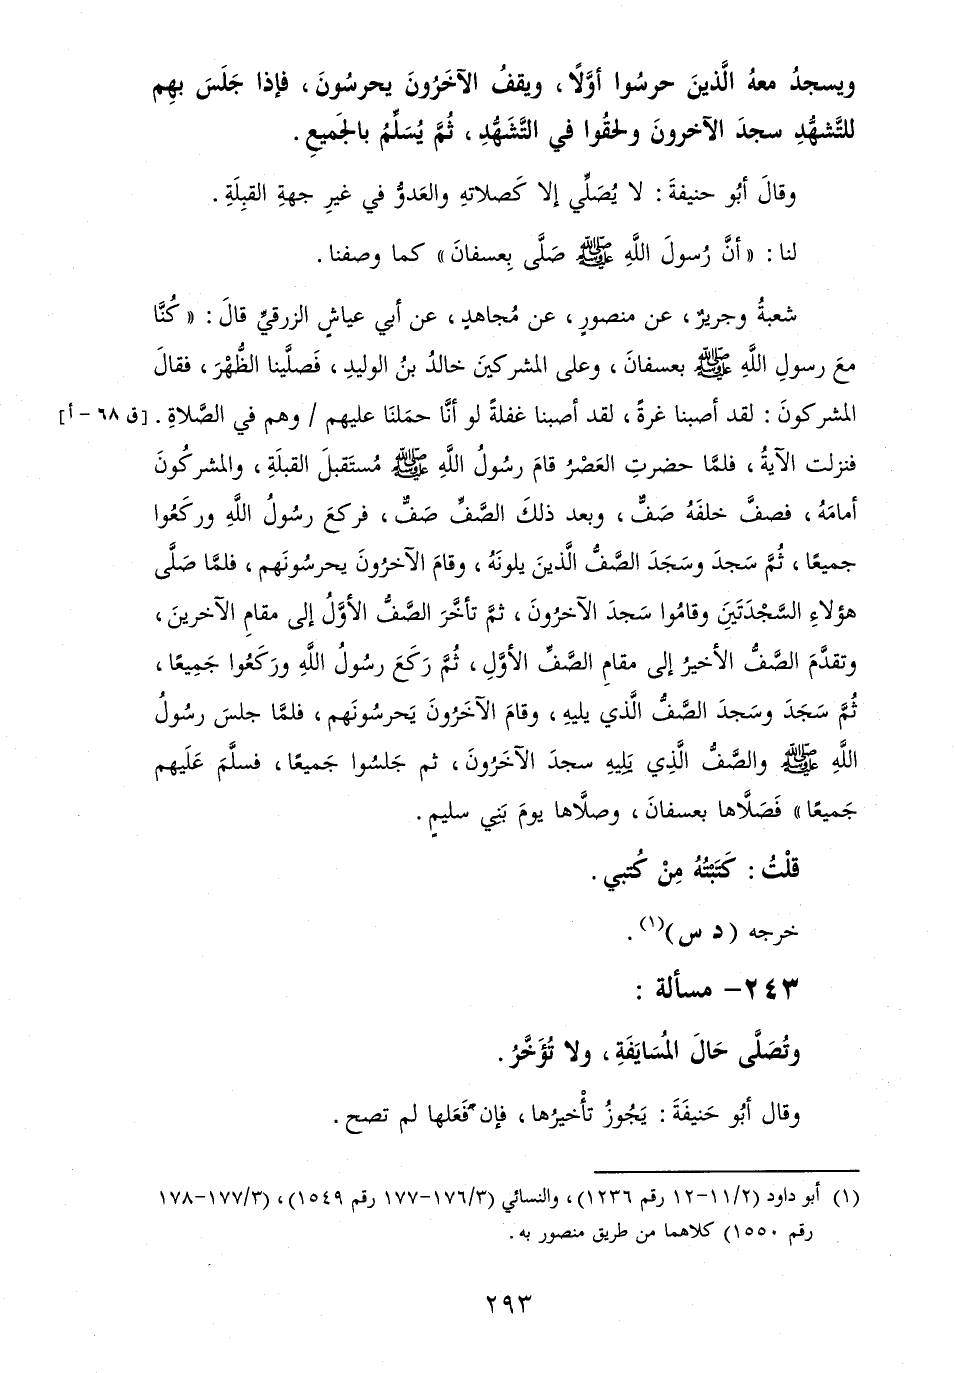 ويسجدُ معهُ الَّذينَ حرسُوا أوَّلًا ، ويقفُ الآخَرُونَ يحرسُونَ ، فإذا جَلَسَ بهِم
للتَّشهُّدِ سجدَ الآخرونَ ولحقُوا في التَّشَهُّدِ ، ثُمَّ يُسَلِّمُ بالجَميعِ .
وقالَ أبُو حنيفةَ : لا يُصَلِّي إلا كَصلاتهِ والعَدوُّ في غيرِ جهةِ القبِلَةِ .
لنا : « أنَّ رُسولَ اللَّهِ ﷺ صَلَّى بِعسفانَ » كما وصفنا .
شعبةُ وجريرٌ ، عن منصورٍ ، عن مُجاهدٍ ، عن أبي عياشٍ الزرقيِّ قالَ : « كُنَّا
معَ رسولِ اللَّهِ ﷺ بعسفانَ ، وعلى المشركينَ خالدُ بنُ الوليدِ ، فَصلَّينا الظُّهْرَ ، فقالَ
المشركونَ : لقد أصبنا غرةً ، لقد أصبنا غفلةً لو أنَّا حمَلنَا عليهم / وهم في الصَّلاةِ . [ق ٦٨ - أ]
فنزلت الآيةُ ، فلمَّا حضرتِ العَصْرُ قامَ رسولُ اللَّهِ ﷺ مُستَقبلَ القبلَةِ ، والمشركُونَ
أمامَهُ ، فصفَّ خلفَهُ صَفٌّ ، وبعد ذلكَ الصَّفِّ صَفٌّ ، فركعَ رسُولُ اللَّهِ وركَعُوا
جميعًا ، ثُمَّ سَجدَ وسَجَدَ الصَّفُّ الَّذينَ يلونَهُ ، وقامَ الآخرُونَ يحرسُونَهم ، فلمَّا صَلَّى
هؤلاءِ السَّجْدَتَينَِ وقامُوا سَجدَ الآخرُونَ ، ثمَّ تأخَّرَ الصَّفُّ الأوَّلُ إلى مقامِ الآخرينَ ،
وتقدَّمَ الصَّفُّ الأخيرُ إلى مقامِ الصَّفِّ الأوَّلِ ، ثُمَّ رَكَعَ رسُولُ اللَّهِ ورَكَعُوا جَمِيعًا ،
ثُمَّ سَجَدَ وسَجدَ الصَّفُّ الَّذي يليهِ ، وقامَ الآخَرُونَ يَحرسُونَهم ، فلمَّا جلسَ رسُولُ
اللَّهِ ﷺ والصَّفُّ الَّذِي يَلِيهِ سجدَ الآخَرُونَ ، ثم جَلسُوا جَميعًا ، فسلَّمَ عَلَيهم
جَميعًا » فَصَلَّاها بعسفانَ ، وصلَّاها يومَ بَنِي سليمٍ .
قلْتُ : كَتَبْتُهُ مِنْ كُتبي .
خرجه ( د س )(١) .
٢٤٣- مسألة :
وتُصَلَّى حَالَ المُسَايَفَةِ ، ولا تُؤَخَّرُ .
وقال أبُو حَنيفَةَ : يَجُوزُ تأْخيرُها ، فإن فَعَلها لم تصح .
(١) أبو داود (١١/٢-١٢ رقم ١٢٣٦) ، والنسائي (١٧٦/٣-١٧٧ رقم ١٥٤٩) ، (١٧٧/٣-١٧٨
رقم ١٥٥٠) كلاهما من طريق منصور به .
٢٩٣